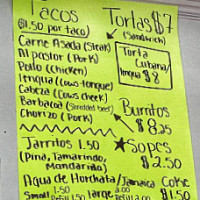 Tacos
($1.50 por taco)
Carne Asada (Steak)
Al pastor (Pork)
Pollo (Chicken)
lengua (Cows tongue)
Cabeza (Cows cheek)
Barbacoa (Shredded beef)
Chorizo (Pork)
Tortas $7
(Sandwich)
Torta
Cubana/
lengua $8
Burritos
$8.25
Sopes
$2.50
Jarritos 1.50
(Pina, Tamarindo,
Mandarina)
Agua de Horchata/Jamaica
Small 1.50
large
Coke
$1.50